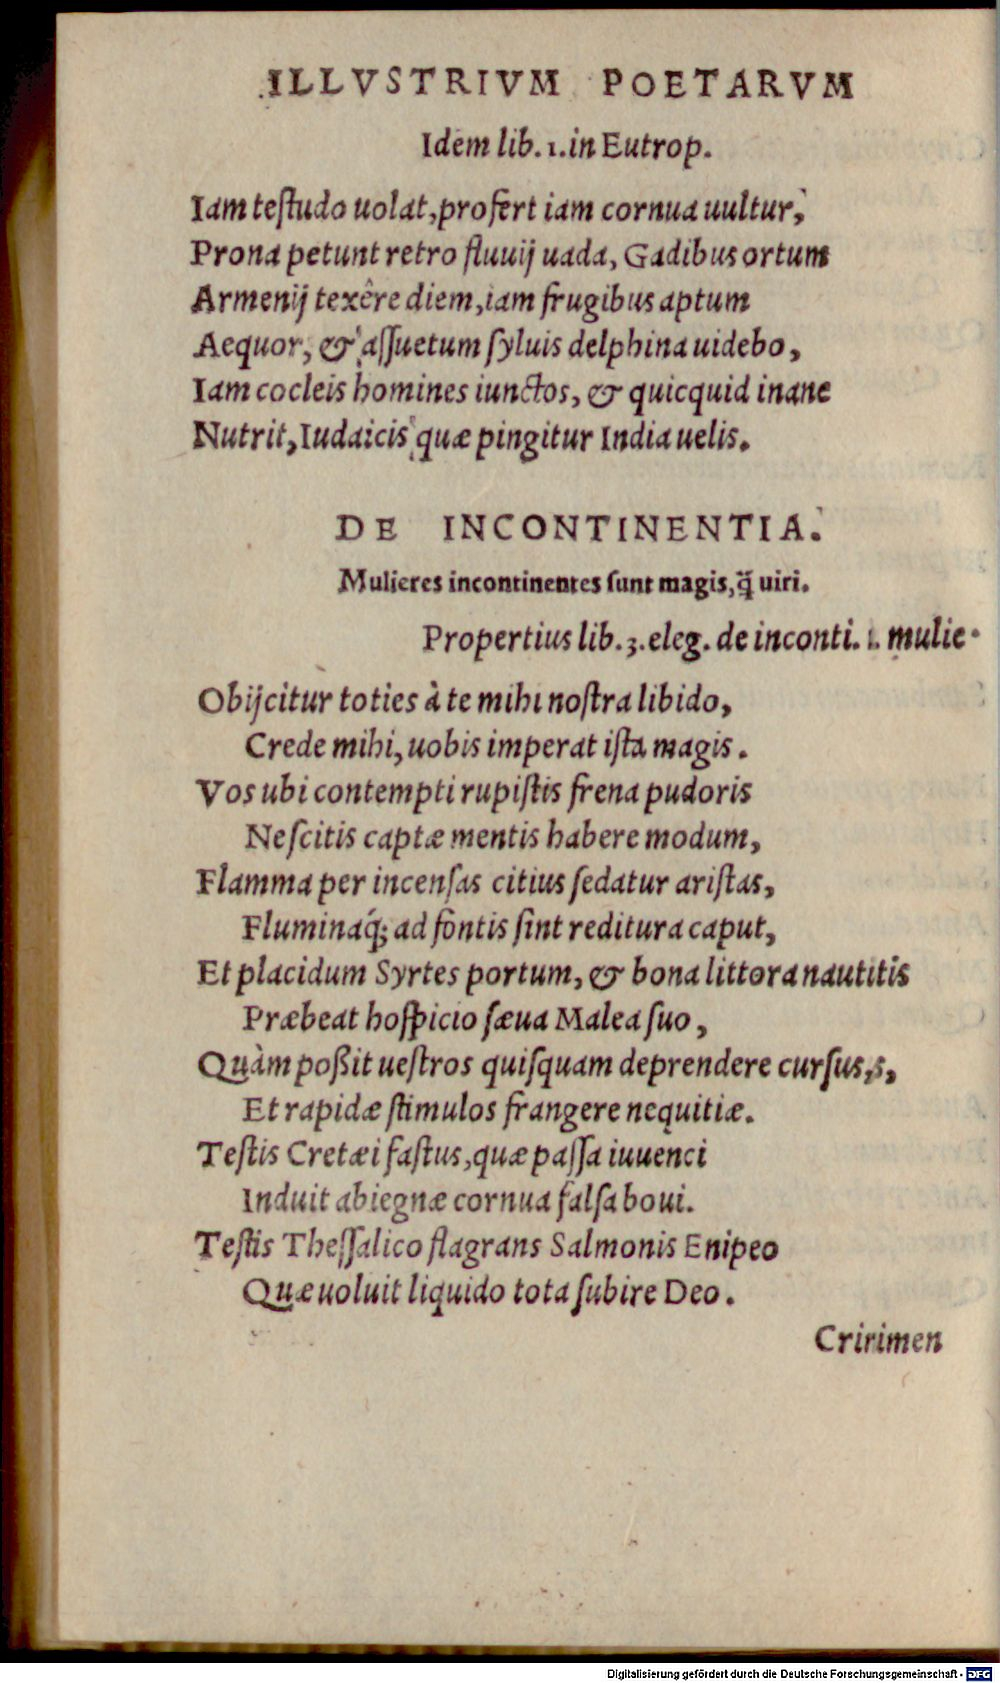 ILLVSTRIVM POETARVM
Idem lib. 1. in Eutrop.
Iam teſtudo uolat, profert iam cornua uultur,
Prona petunt retro fluuij uada, Gadibus ortum
Armenij texêre diem, iam frugibus aptum
Aequor, & aſſuetum ſyluis delphina uidebo,
Iam cocleis homines iunctos, & quicquid inane
Nutrit, Iudaicis quæ pingitur India uelis.
DE INCONTINENTIA.
Mulieres incontinentes ſunt magis, q̃ uiri.
Propertius lib. 3. eleg. de inconti. 1. mulie.
Obijcitur toties à te mihi noſtra libido,
Crede mihi, uobis imperat iſta magis.
Vos ubi contempti rupiſtis frena pudoris
Neſcitis captæ mentis habere modum,
Flamma per incenſas citius ſedatur ariſtas,
Fluminaq́; ad fontis ſint reditura caput,
Et placidum Syrtes portum, & bona littora nautitis
Præbeat hoſpicio ſæua Malea ſuo,
Quàm poßit ueſtros quiſquam deprendere curſus,s,
Et rapidæ ſtimulos frangere nequitiæ.
Teſtis Cretæi faſtus, quæ paſſa iuuenci
Induit abiegnæ cornua falſa boui.
Teſtis Theſſalico flagrans Salmonis Enipeo
Quæ uoluit liquido tota ſubire Deo.
Cririmen
Digitalisierung gefördert durch die Deutsche Forschungsgemeinschaft - DFG